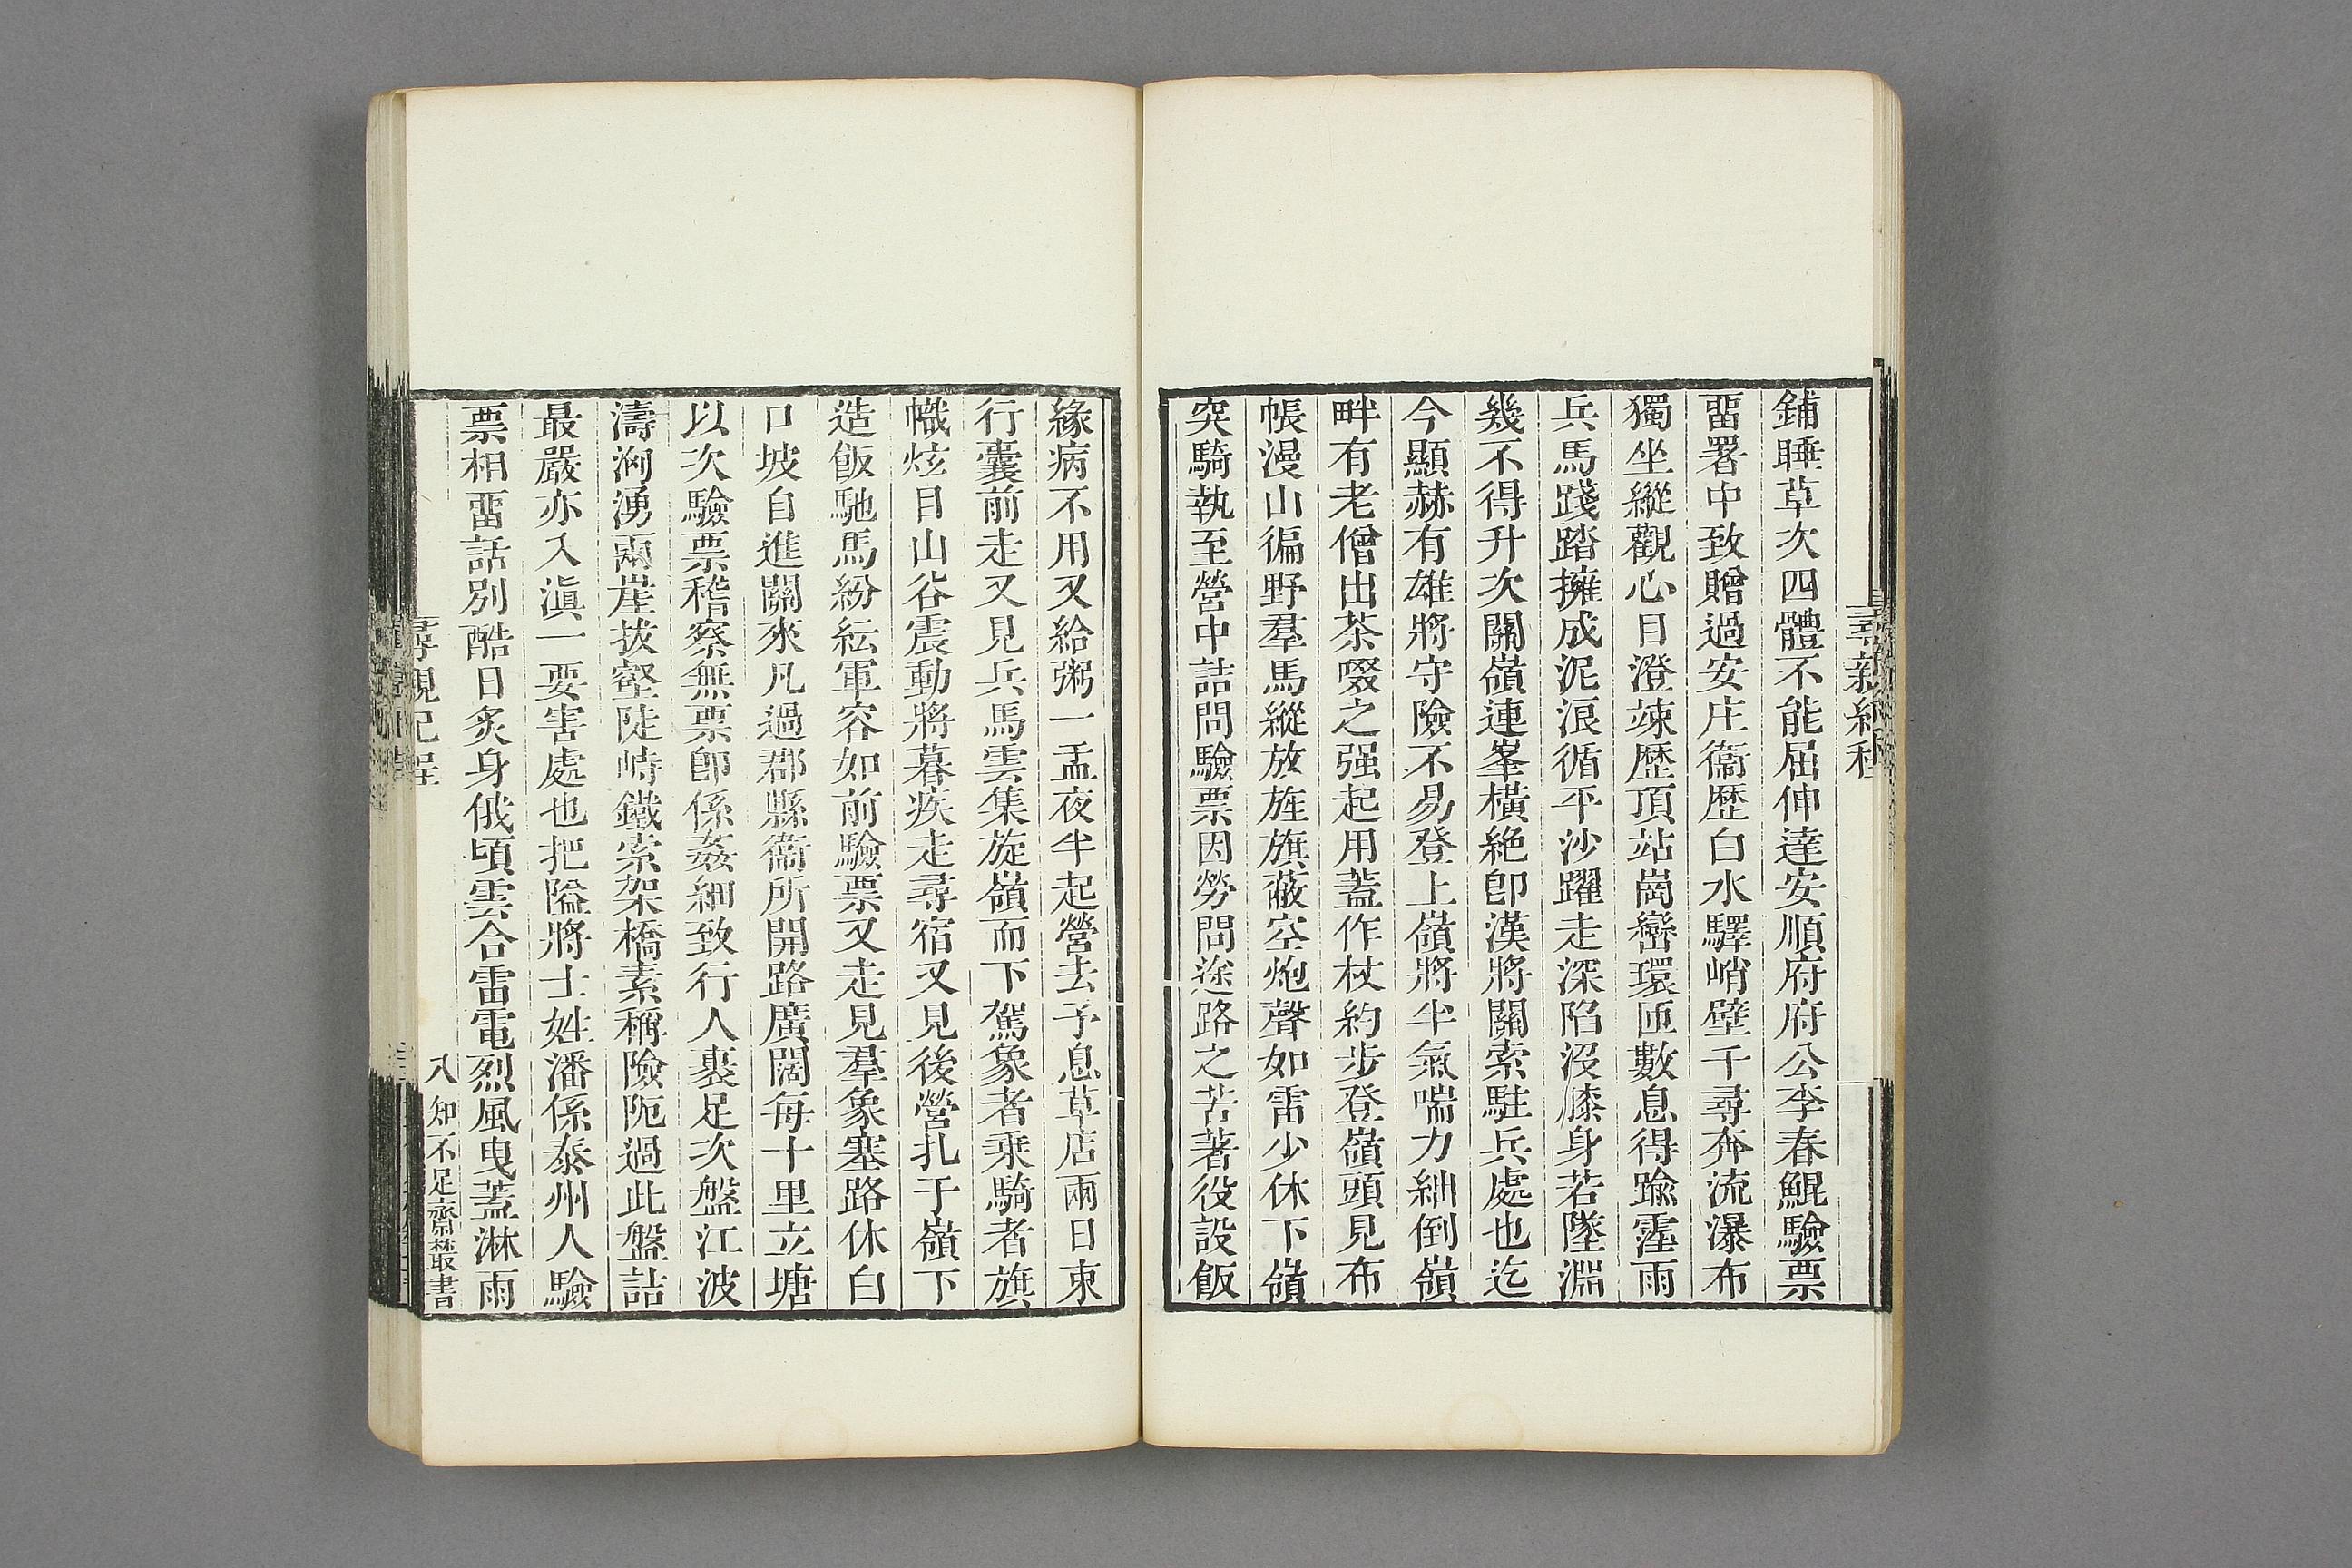 鋪睡草次四體不能屈伸達安順府府公李春鯤驗票
畱署中致贈過安庄衞歷白水驛峭壁千尋奔流瀑布
獨坐縱觀心目澄竦歷頂站崗巒環匝數息得踰霪雨
兵馬踐踏擁成泥浪循平沙躍走深陷没膝身若墜淵
幾不得升次關嶺連峯橫絶卽漢將關索駐兵處也迄
今顯赫有雄將守險不易登上嶺將半氣喘力絀倒嶺
畔有老僧出茶啜之强起用蓋作杖約步登嶺頭見布
帳漫山徧野羣馬縱放旌旗蔽空炮聲如雷少休下嶺
突騎執至營中詰問驗票因勞問途路之苦著役設飯
緣病不用又給粥一盂夜半起營去予息草店兩日束
行囊前走又見兵馬雲集旋嶺而下駕象者乘騎者旗
幟炫目山谷震動將暮疾走尋宿又見後營扎于嶺下
造飯馳馬紛紜軍容如前驗票又走見羣象塞路休白
口坡自進關來凡過郡縣衞所開路廣闊每十里立塘
以次驗票稽察無票卽係姦細致行人裹足次盤江波
濤洶湧兩崖拔壑陡峙鐵索架橋素稱險阨過此盤詰
最嚴亦入滇一要害處也把隘將士姓潘係泰州人驗
票相畱話別酷日炙身俄頃雲合雷電烈風曳蓋淋雨
尋親紀程
八
知不足齋叢書